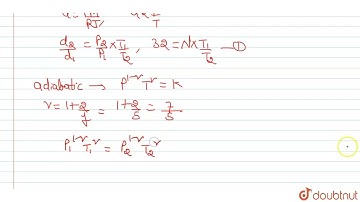 d2/d1 = P2/P1 × T1/T2 , 32 = N × T1/T2 —①
adiabatic → P^1-γ T^γ = K
γ = 1+2/f = 1+2/5 = 7/5
P1^1-γ T1^γ = P2^1-γ T2^γ
doubtnut